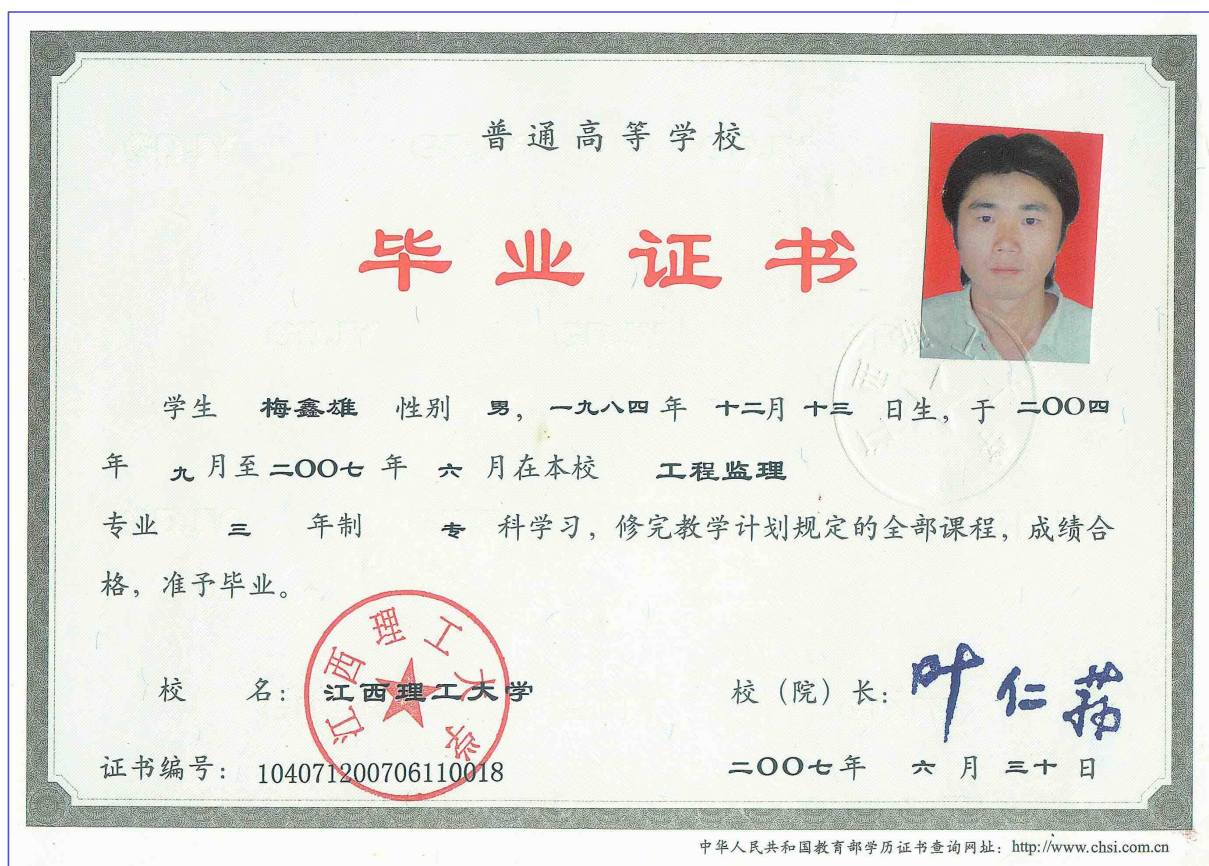 普通高等学校
毕业证书
学生 梅鑫雄 性别 男，一九八四年 十二月十三 日生，于 二〇〇四
年 九月至二〇〇七 年 六 月在本校 工程监理
专业 三 年制 专 科学习，修完教学计划规定的全部课程，成绩合
格，准予毕业。
江西理工大学
校 名：江西理工大学 校（院）长：叶仁荪
证书编号：104071200706110018 二〇〇七年 六 月 三十 日
中华人民共和国教育部学历证书查询网址：http://www.chsi.com.cn